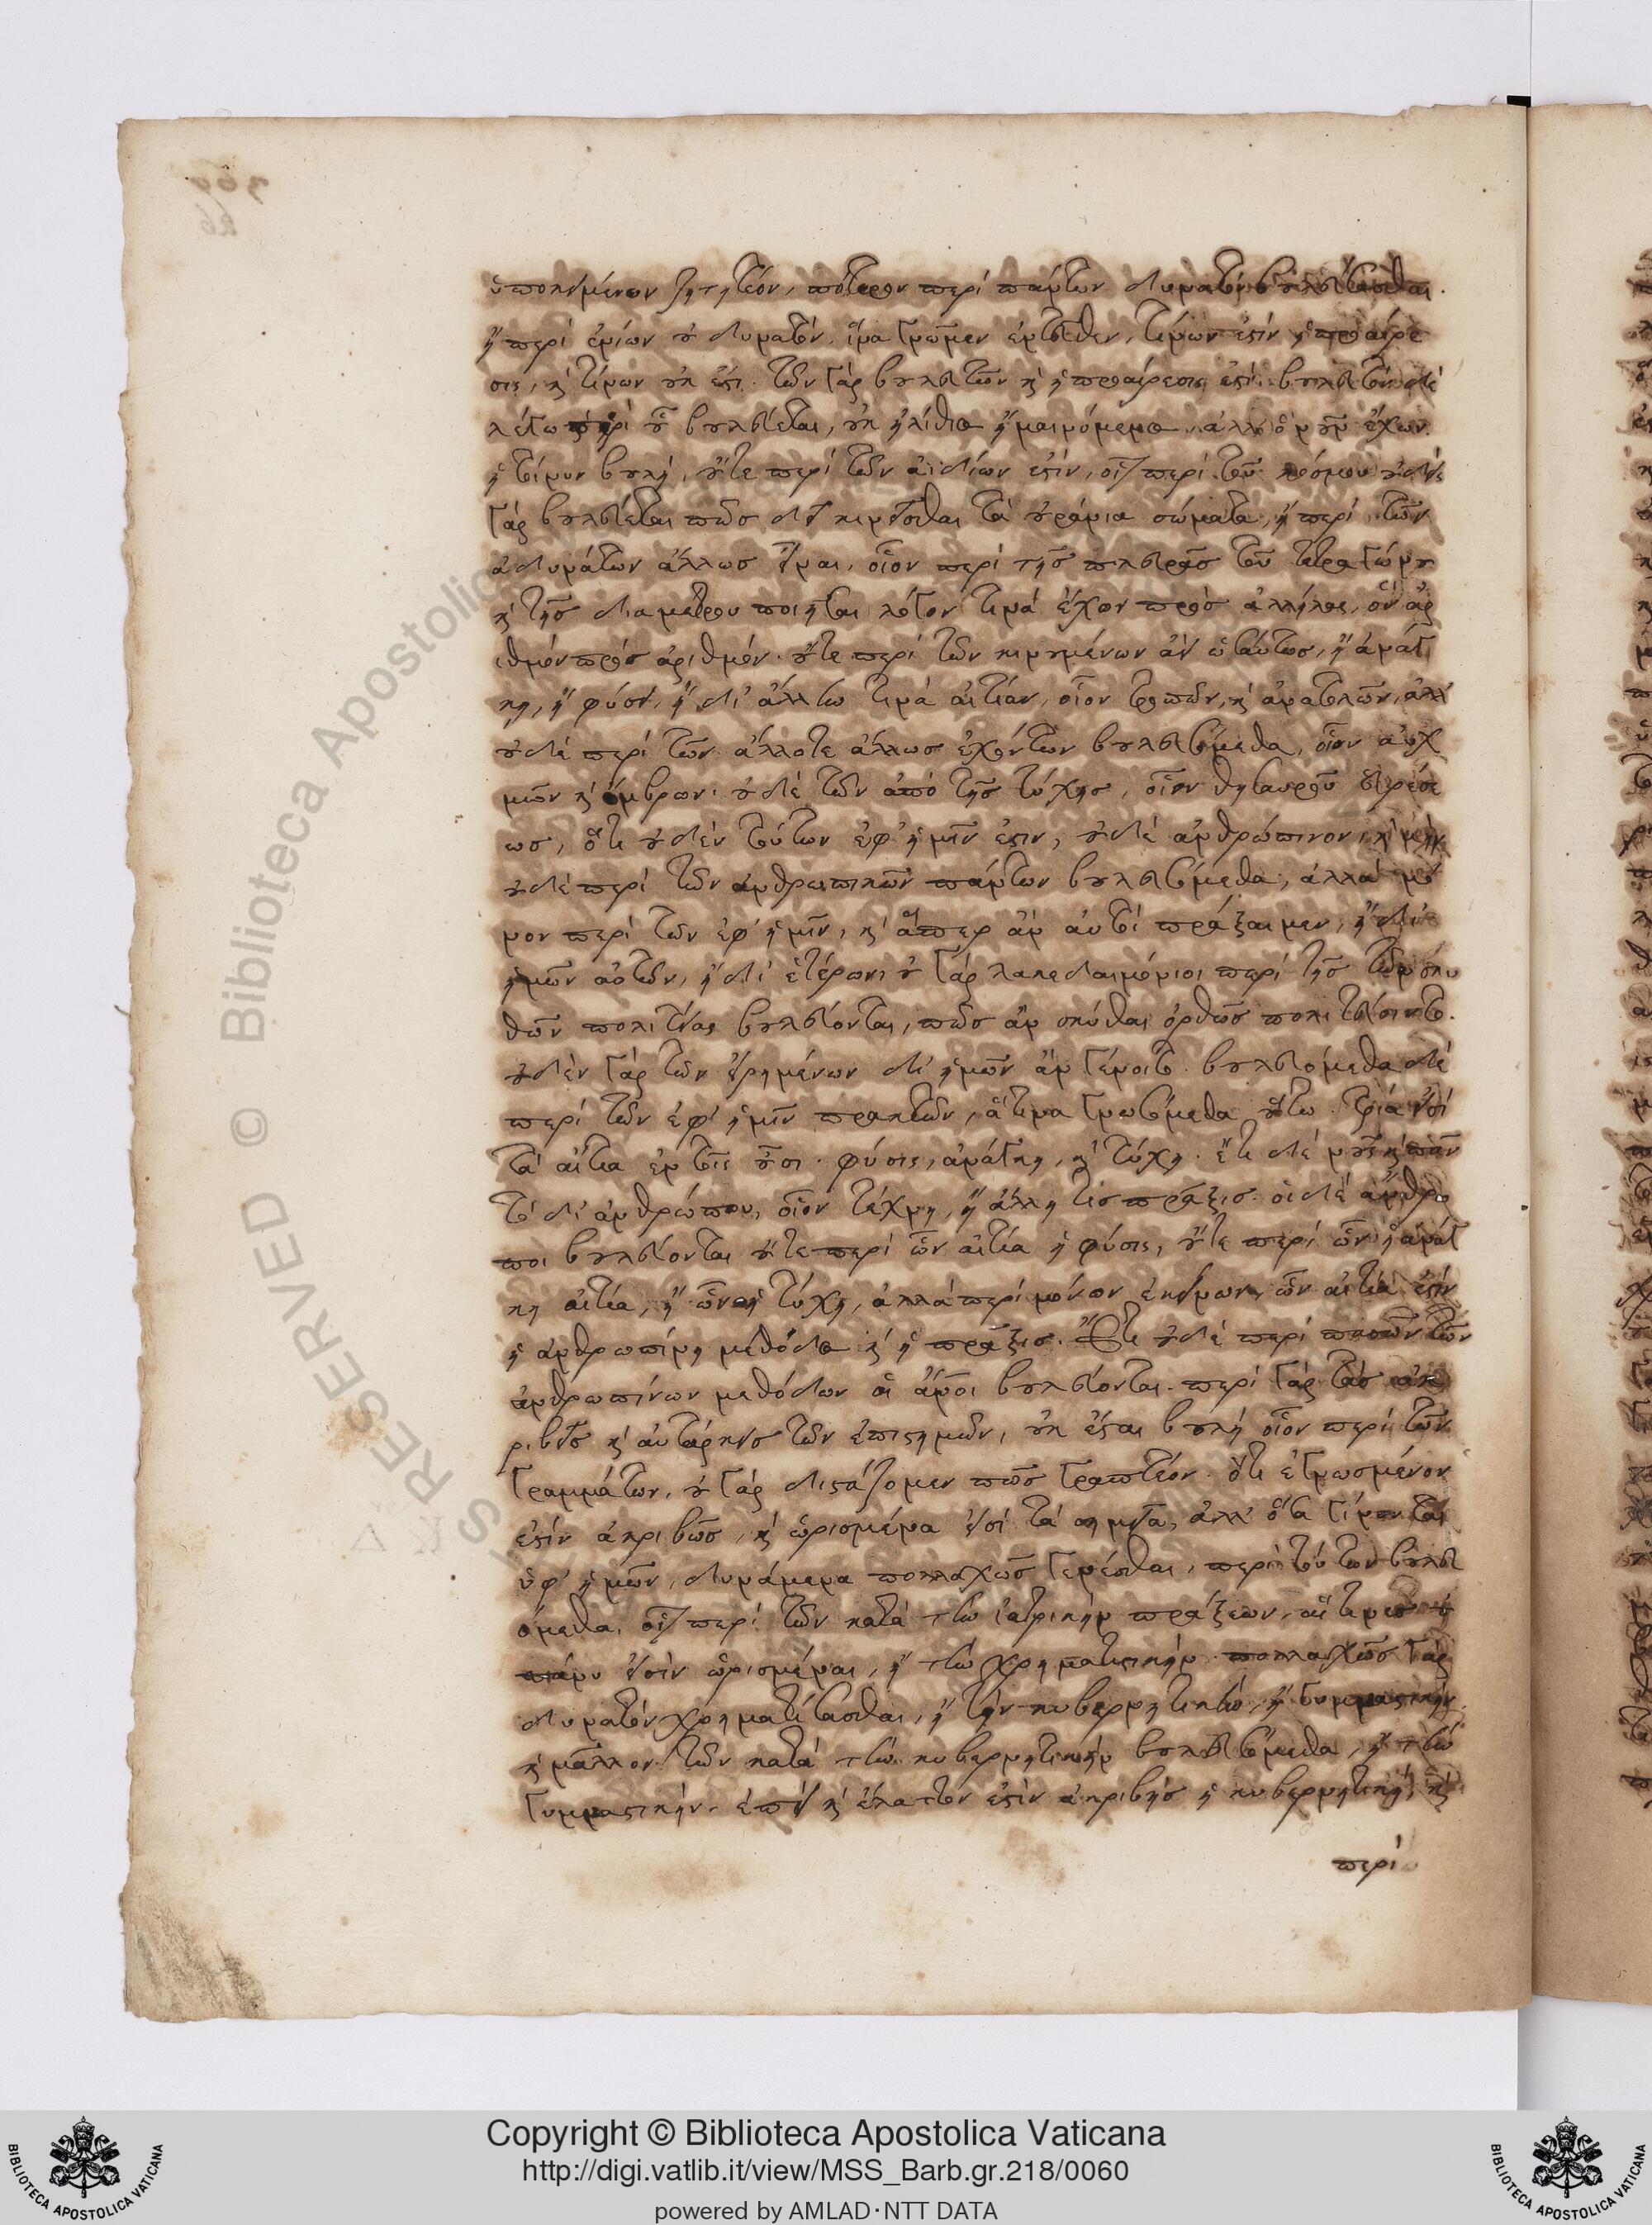 ὑποκειμένων ζητητέον, πότερον περὶ πάντων δυνατὸν βουλεύσασθαι.
ἢ περὶ ἐνίων οὐ δυνατόν, ἵνα γνῶμεν ἐντεῦθεν, τίνων ἐστὶν ἡ προαίρε
σις, καὶ τίνων οὐκ ἔστι. τῶν γὰρ βουλευτῶν καὶ ἡ προαίρεσις ἐστί. βουλευτὸν δὲ
λέγω περὶ οὗ βουλεύεται, οὐκ ἠλίθιος ἢ μαινόμενος, ἀλλ' ὁ νοῦν ἔχων.
ἡ τοίνυν βουλὴ, οὔτε περὶ τῶν ἀϊδίων ἐστὶν, οἷον περὶ τοῦ κόσμου οὐδεὶς
γὰρ βουλεύεται πῶς δεῖ κινεῖσθαι τὰ οὐράνια σώματα, ἢ περὶ τῶν
ἀδυνάτων ἄλλως εἶναι, οἷον περὶ τῆς πλευρᾶς τοῦ τετραγώνου
καὶ τῆς διαμέτρου ποιῆσαι λόγον τινὰ ἔχον πρὸς ἀλλήλας, ὃν ἀρ
ιθμὸν πρὸς ἀριθμόν. οὔτε περὶ τῶν κινουμένων ἀεὶ ὡσαύτως, ἢ ἀνάγ
κῃ, ἢ φύσει, ἢ δι' ἄλλην τινὰ αἰτίαν, οἷον τροπῶν, καὶ ἀνατολῶν, ἀλλ'
οὐδὲ περὶ τῶν ἄλλοτε ἄλλως ἐχόντων βουλευόμεθα, οἷον αὐχ
μῶν καὶ ὄμβρων. οὐδὲ τῶν ἀπὸ τῆς τύχης, οἷον θησαυροῦ εὑρέσε
ως, ὅτι οὐδὲν τούτων ἐφ' ἡμῖν ἐστιν, οὐδὲ ἀνθρώπινον, καὶ μὴν
οὐδὲ περὶ τῶν ἀνθρωπικῶν πάντων βουλευόμεθα, ἀλλὰ μό
νον περὶ τῶν ἐφ' ἡμῖν, καὶ ἅπερ ἂν αὐτοὶ πράξαιμεν, ἢ δι'
ἡμῶν αὐτῶν, ἢ δι' ἑτέρων. οὐ γὰρ λακεδαιμόνιοι περὶ τῆς τῶν σκυ
θῶν πολιτείας βουλεύονται, πῶς ἂν σκύθαι ὀρθῶς πολιτεύσιντο.
οὐδὲν γὰρ τῶν εἰρημένων δι' ἡμῶν ἂν γένοιτο. βουλευόμεθα δὲ
περὶ τῶν ἐφ' ἡμῖν πρακτῶν, ἅτινα γνωσόμεθα οὕτω. τρία εἰσὶ
τὰ αἴτια ἐν τοῖς οὖσι. φύσις, ἀνάγκη, καὶ τύχη. ἔτι δὲ νοῦς καὶ πᾶν
τὸ δι' ἀνθρώπου, οἷον τέχνη, ἢ ἄλλη τις πρᾶξις. οἱ δὲ ἄνθρω
ποι βουλεύονται οὔτε περὶ ὧν αἰτία ἡ φύσις, οὔτε περὶ ὧν ἡ ἀνάγ
κη αἰτία, ἢ ὧν ἡ τύχη, ἀλλὰ περὶ μόνων ἐκείνων, ὧν αἰτία ἐστὶν
ἡ ἀνθρωπίνη μέθοδος καὶ ἡ πρᾶξις. Ἔτι οὐδὲ περὶ πασῶν τῶν
ἀνθρωπίνων μεθόδων οἱ ἄνοι βουλεύονται. περὶ γὰρ τὰς ἀκ
ριβεῖς καὶ αὐτάρκεις τῶν ἐπιστημῶν, οὐκ ἔσται βουλὴ οἷον περὶ τῶν
γραμμάτων, οὐ γὰρ διστάζομεν πῶς γραπτέον. ὅτι ἐγνωσμένον
ἐστὶν ἀκριβῶς, καὶ ὡρισμένα εἰσὶ τὰ σημεῖα, ἀλλ' ὅσα γίνονται
ὑφ' ἡμῶν, δυνάμενα πολλαχῶς γενέσθαι, περὶ τούτων βουλευ
όμεθα, οἷον περὶ τῶν κατὰ τὴν ἰατρικὴν πράξεων, αἵτινες οὐ
πάνυ εἰσὶν ὡρισμέναι, ἢ τὴν χρηματιστικήν. πολλαχῶς γὰρ
δυνατὸν χρηματίσασθαι, ἢ τὴν κυβερνητικὴν, ἢ γυμναστικὴν
καὶ μᾶλλον τῶν κατὰ τὴν κυβερνητικὴν βουλευόμεθα, ἢ τὴν
γυμναστικήν. ἐπεὶ καὶ ἔλαττον ἐστὶν ἀκριβὴς ἡ κυβερνητικὴ, καὶ
περὶ